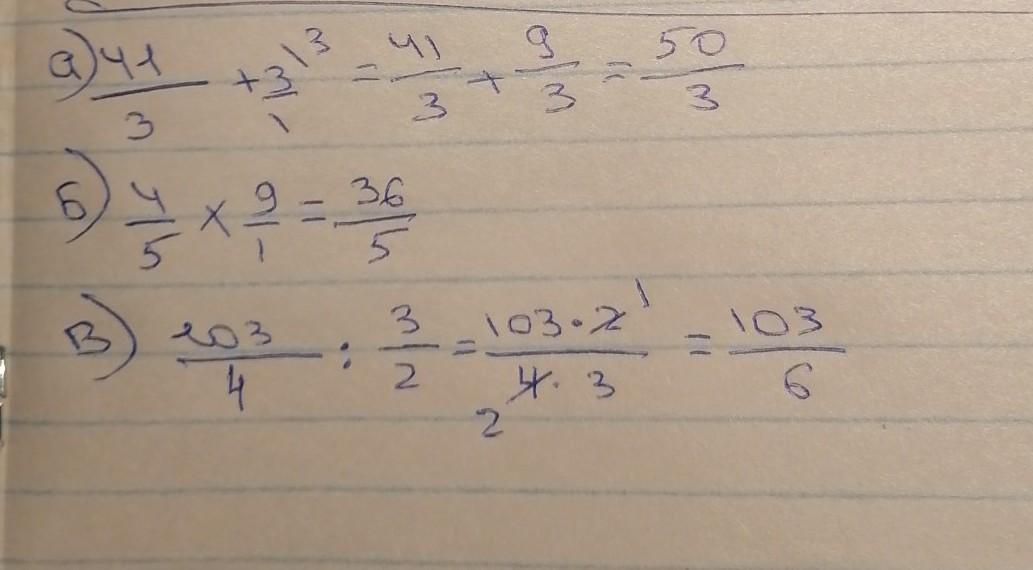 а) 41/3 + 3/1 \3 = 41/3 + 9/3 = 50/3
Б) 4/5 × 9/1 = 36/5
В) 103/4 : 3/2 = 103·2 1/4·3 2 = 103/6